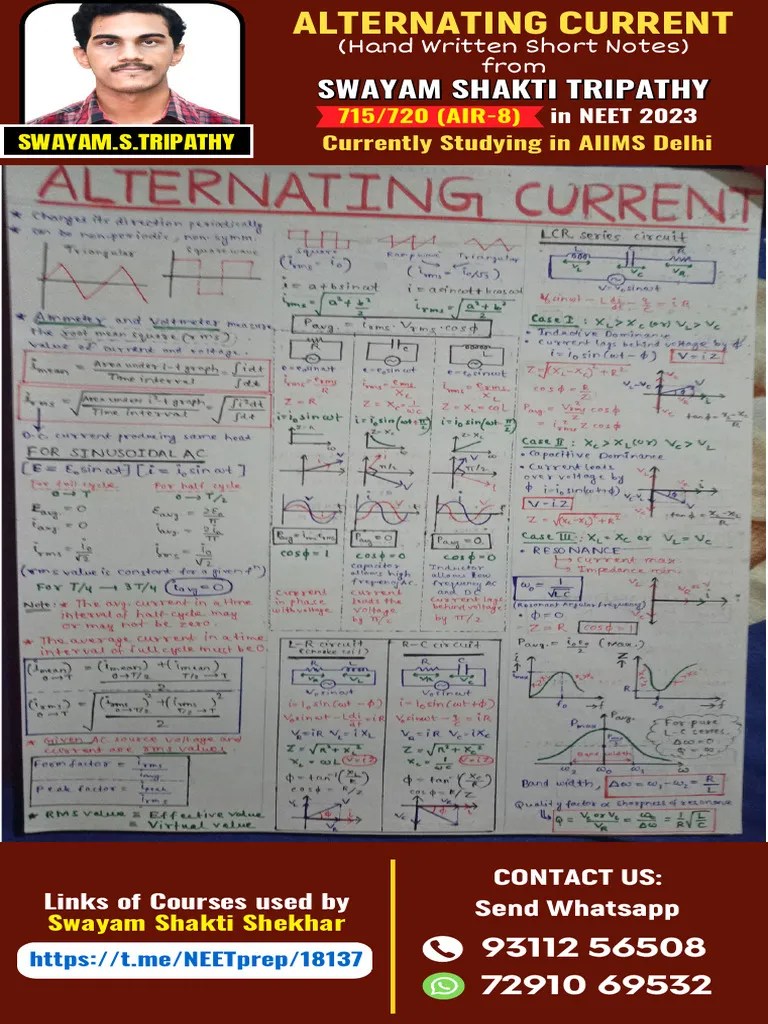 ALTERNATING CURRENT
(Hand Written Short Notes)
from
SWAYAM SHAKTI TRIPATHY
715/720 (AIR-8) in NEET 2023
Currently Studying in AIIMS Delhi
SWAYAM.S.TRIPATHY
ALTERNATING CURRENT
* Changes its direction periodically
* can be non-periodic, non-symm.
Triangular
Square wave
* Ammeter and Voltmeter measure
the root mean square (rms)
value of current and voltage.
i mean = Area under i-t graph / Time interval = ∫idt / ∫dt
i rms = √(Area under i²-t graph / Time interval) = √(∫i²dt / ∫dt)
D.C. current producing same heat
FOR SINUSOIDAL AC
[E = E₀sinωt] [i = i₀sinωt]
For full cycle
0 → T
For half cycle
0 → T/2
Eavg = 0
Eavg = 2E₀/π
iavg = 0
iavg = 2i₀/π
irms = i₀/√2
irms = i₀/√2
(rms value is constant for a given fⁿ)
For T/4 → 3T/4 iavg = 0
Note: * The avg. current in a time
interval of half-cycle may
or may not be zero.
* The average current in a time
interval of full cycle must be 0.
* Given AC source voltage and
current are rms values
Form factor = irms / iavg
Peak factor = ipeak / irms
* RMS value = Effective value
= Virtual value
square
(irms = i₀)
Ramp wave
Triangular
(irms = i₀/√3)
i = a + b sinωt
irms = √(a² + b²/2)
i = a sinωt + b cosωt
Pavg. = irms · Vrms · cosϕ
R
C
L
e = e₀sinωt
e = e₀sinωt
e = e₀sinωt
Z = R
Z = XL = ωL
i = i₀sinωt
i = i₀sin(ωt + π/2)
i = i₀sin(ωt − π/2)
Pavg = irms vrms
Pavg = 0
Pavg = 0
cosϕ = 1
cosϕ = 0
cosϕ = 0
Current
in phase
with voltage
Capacitor
allows high
frequency AC
current
leads the
voltage
by π/2
Inductor
allows low
frequency AC
and DC
Current lags
behind voltage
by π/2
L-R circuit
(choke coil)
R L
V₀sinωt
i = I₀sin(ωt − ϕ)
V₀sinωt − L di/dt = iR
VR = iR VL = iXL
Z = √(R² + XL²)
XL = ωL V = iZ
ϕ = tan⁻¹(XL/R)
cosϕ = R/Z
R-C circuit
R C
V₀sinωt
i = I₀sin(ωt + ϕ)
V₀sinωt − q/C = iR
VR = iR VC = iXC
Z = √(R² + XC²)
XC = 1/ωC V = iZ
ϕ = tan⁻¹(XC/R)
cosϕ = R/Z
LCR series circuit
L C R
VL VC VR
V = V₀sinωt
V₀sinωt − L di/dt − q/C = iR
Case I : XL > XC (or) VL > VC
• Inductive Dominance
• Current lags behind voltage by ϕ
i = i₀sin(ωt − ϕ) V = iZ
Z = √((XL − XC)² + R²)
cosϕ = R/Z
Pavg = Vrms irms cosϕ
= i²rms Z cosϕ
Case II : XC > XL (or) VC > VL
• Capacitive Dominance
• Current leads
over voltage by
ϕ i = i₀sin(ωt + ϕ)
V = i.Z
Z = √((XL − XC)² + R²)
Case III : XL = XC or VL = VC
• RESONANCE
Current max.
Impedance min.
ω₀ = 1/√LC
(Resonant Angular frequency)
• ϕ = 0
• Z = R cosϕ = 1
(Max.)
f₀
f₀
Pmax
Pavg.
For pure
L-C series
Δω = 0
Q = ∞
Band width
ω₂ ω₀ ω₁
Band width, Δω = ω₁ − ω₂ = R/L
Quality factor α sharpness of resonance
Q = VL or VC / VR = ω₀/Δω = 1/R √(L/C)
Links of Courses used by
Swayam Shakti Shekhar
https://t.me/NEETprep/18137
CONTACT US:
Send Whatsapp
93112 56508
72910 69532